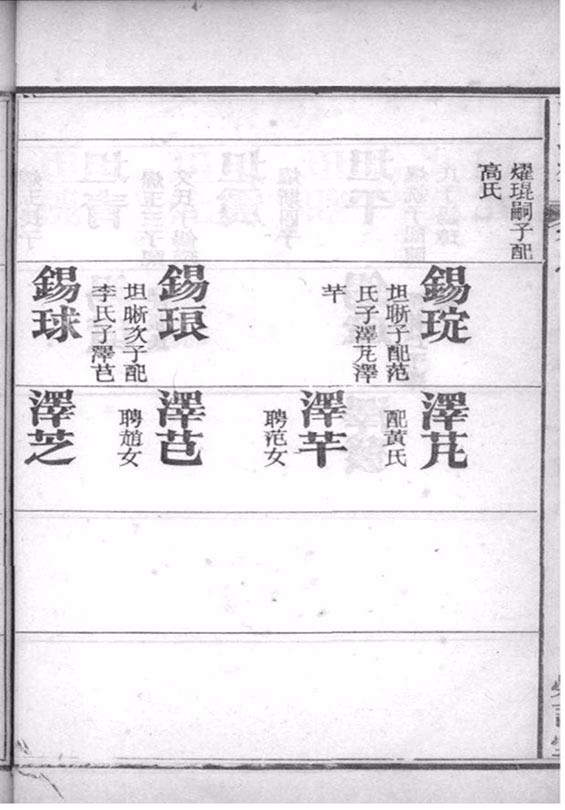 燿琨嗣子配
高氏
錫琔
坦晣子配范
氏子澤芃澤
芉
錫琅
坦晣次子配
李氏子澤芑
錫球
澤芃
配黃氏
澤芉
聘范女
澤芑
聘趙女
澤芝